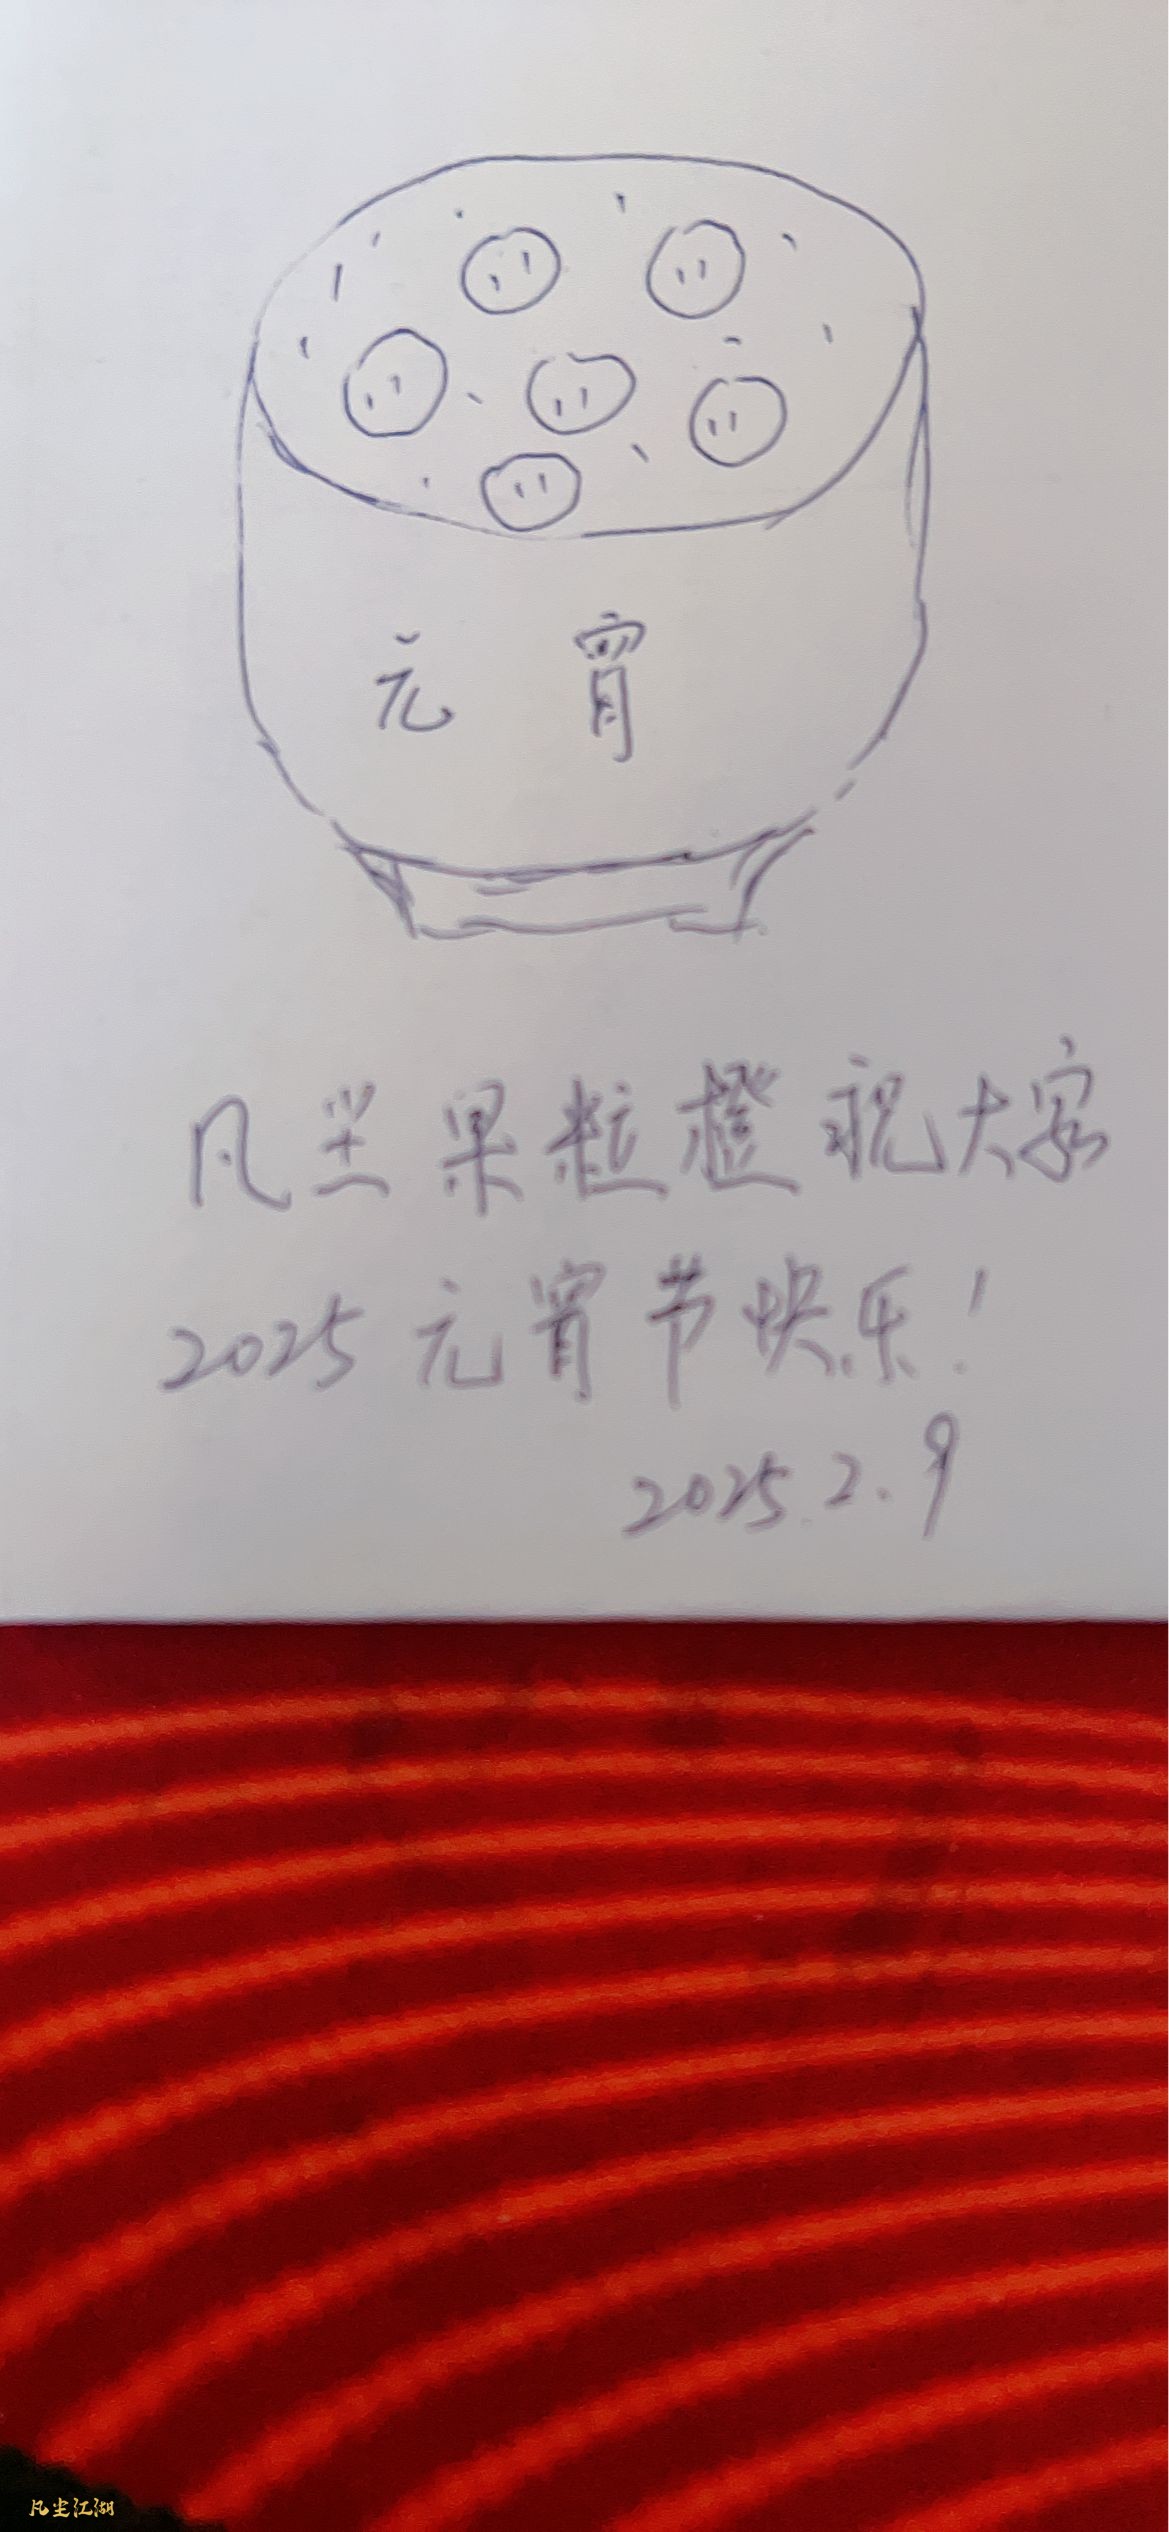 元 宵
凡尘果粒橙祝大家
2025元宵节快乐!
2025.2.9
凡尘江湖